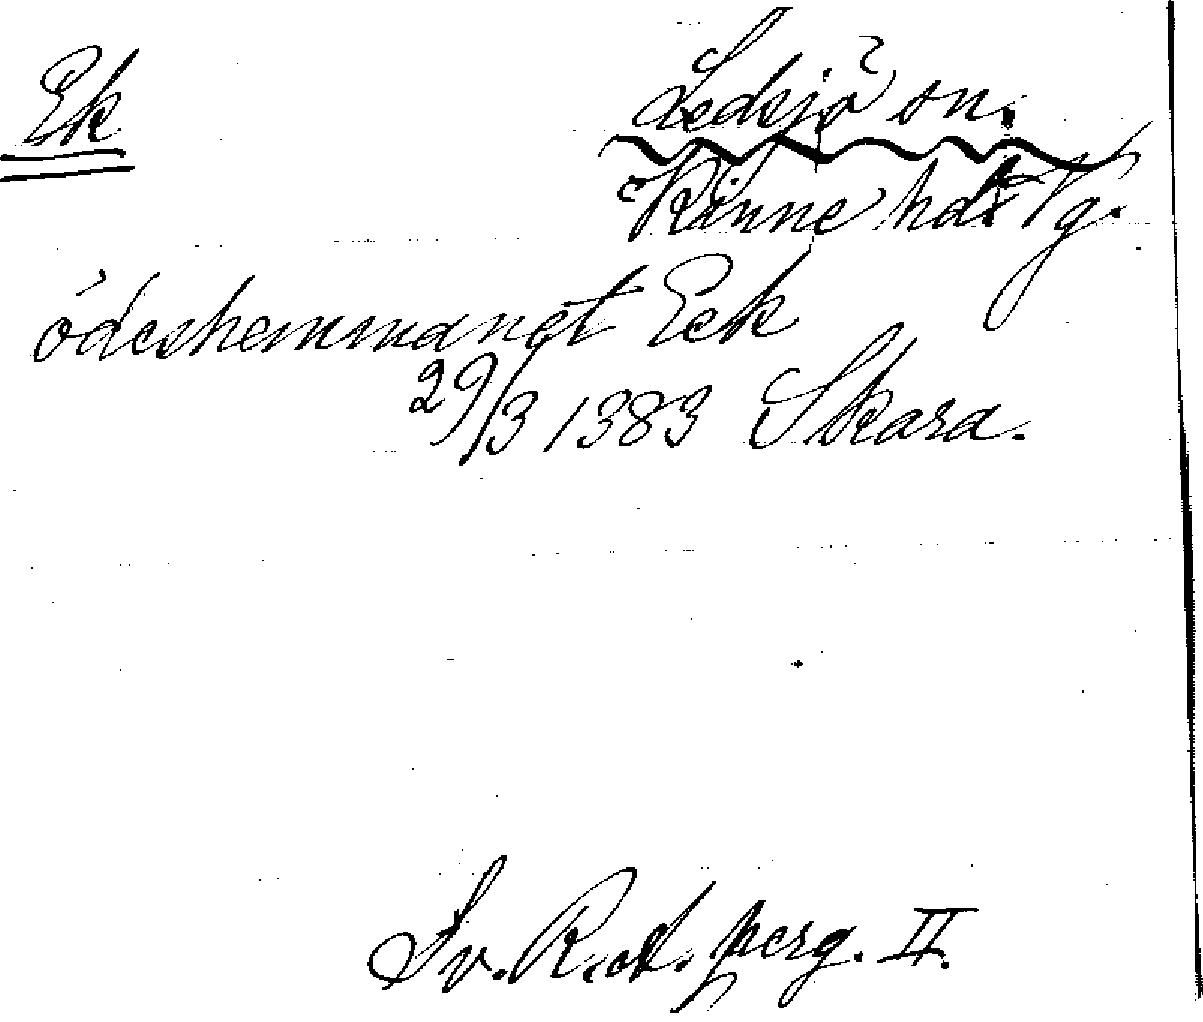 Ek
Ledsjö sn.
Kinne hd. Vg.
ödeshemmanet Eek
29/3 1383 Skara.
Sv. R.at. perg. II.